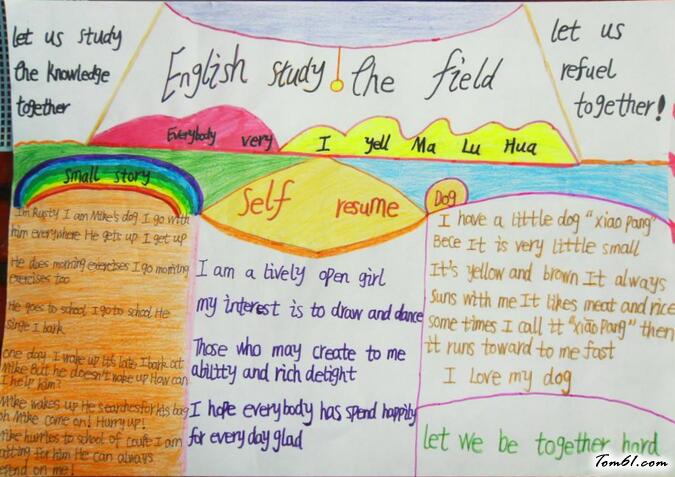 let us study
the knowledge
together
English study the field
let us
refuel
together!
Everybody very I yell Ma Lu Hua
Small story
I'm Rusty I am Mike's dog I go with
him everywhere He gets up I get up
He does morning exercises I go morning
exercises too
He goes to school I go to school He
sings I bark
one day I wake up It's late, I bark at
Mike But he doesn't wake up How can
I help him?
Mike wakes up He searches for his bag
oh Mike come on! Hurry up!
Mike hurries to school of I am
for him He can always
on me!
Self resume
I am a lively open girl
my interest is to draw and dance
Those who may create to me
ability and rich delight
I hope everybody has spend happily
for every day glad
Dog
I have a little dog "xiao pang"
Bece It is very little small
It's yellow and brown It always
suns with me It likes meat and rice
some times I call it "xiao pang" then
it runs toward to me fast
I Love my dog
let we be together hard
Tom61.com